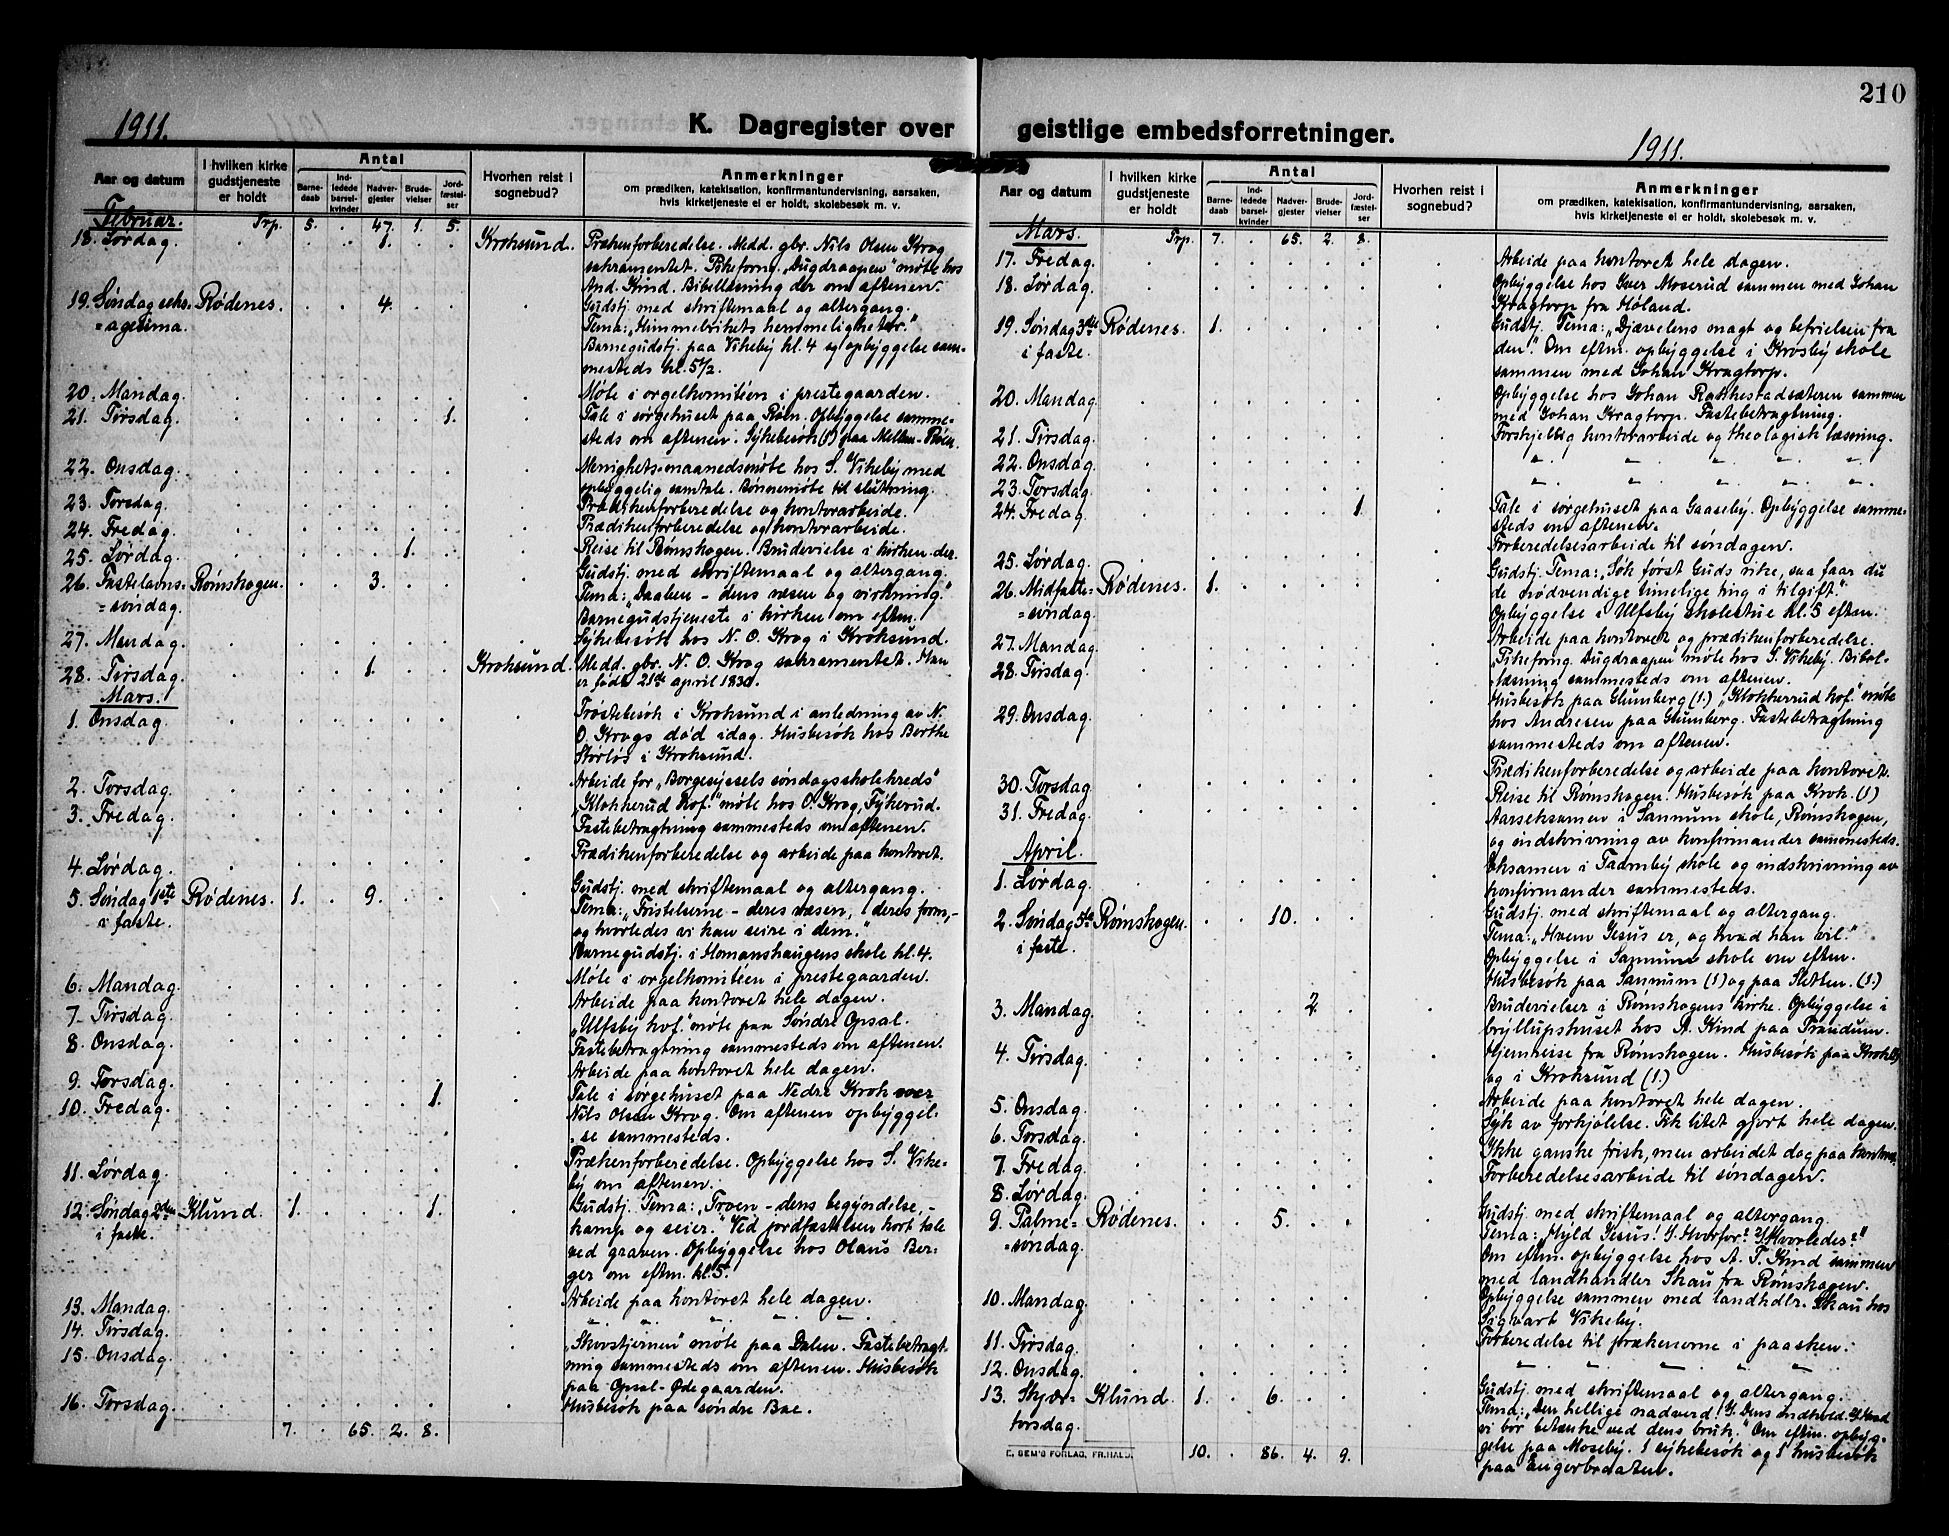 210
1911.
K. Dagregister over
Aar og datum
I hvilken kirke gudstjeneste er holdt
Antal
Barne- daab
Ind- ledede barsel- kvinder
Nadver- gjester
Brude- vielser
Jord- fæstel- ser
Hvorhen reist i sognebud?
Anmerkninger
om prædiken, katekisation, konfirmantundervisning, aarsaken,
hvis kirketjeneste ei er holdt, skolebesøk m. v.
Februar. Trp. 5. . 47. 1. 5.
18. Lørdag. . . . 1. . . Kroksund. Prækenforberedelse. Medd. gbr. Nils Olsen Krog
sakramentet. Pikeforng. „Dugdraapen" møte hos
And. Kind. Bibellesning der om aftenen.
19. Søndag seks- Rødenes. . . 4. . . Gudstj. med skriftemaal og altergang.
=agesima. Tema: „Himmerikets hemmeligheter."
Barnegudstj. paa Vikeby kl. 4 og opbyggelse sam-
mesteds kl. 5½.
20. Mandag. Møte i orgelkomitéen i prestegaarden.
21. Tirsdag. 1. Tale i sørgehuset paa Røen. Opbyggelse samme-
steds om aftenen. Sykebesøk (1) paa Mellem-Røen.
22. Onsdag. Menighets-maanedsmøte hos S. Vikeby med
opbyggelig samtale. Bønnemøte til slutning.
23. Torsdag. Prædikenforberedelse og kontorarbeide.
24. Fredag. Prædikenforberedelse og kontorarbeide.
25. Lørdag. 1. Reise til Rømskogen. Brudevielse i kirken der.
26. Fastelavns- Rømskogen. . . 3. Gudstj. med skriftemaal og altergang.
=søndag. Tema: „Daaben – dens væsen og virkning."
Barnegudstjeneste i kirken om eftm.
27. Mandag. Sykebesøk hos N. O. Krog i Kroksund.
28. Tirsdag. 1. Kroksund. Medd. gbr. N. O. Krog sakramentet. Han
er født 21de april 1830.
Mars.
1. Onsdag. Trøstebesøk i Kroksund i anledning av N.
O. Krogs død idag. Husbesøk hos Berthe
Størlös i Kroksund.
2. Torsdag. Arbeide for „Borgesyssels søndagsskolekreds"
3. Fredag. „Klokkerud Hof." møte hos O. Krog, Fykerud.
Fastebetragtning sammesteds om aftenen.
4. Lørdag. Prædikenforberedelse og arbeide paa kontoret.
5. Søndag 1ste Rødenes. 1. . 9. Gudstj. med skriftemaal og altergang.
i faste. Tema: „Fristelserne – deres væsen, deres form,-
og hvorledes vi kan seire i dem."
Barnegudstj. i Homanshaugens skole kl. 4.
6. Mandag. Møte i orgelkomitéen i prestegaarden.
7. Tirsdag. Arbeide paa kontoret hele dagen.
8. Onsdag. „Ulfsby hof." møte paa Søndre Opsal.
Fastebetragtning sammesteds om aftenen.
9. Torsdag. Arbeide paa kontoret hele dagen.
10. Fredag. 1. Tale i sørgehuset paa Nedre Krok over
Nils Olsen Krog. Om aftenen opbyggel-
=se sammesteds.
11. Lørdag. Prækenforberedelse. Opbyggelse hos S. Vike-
by om aftenen.
12. Søndag 2den Klund. 1. 1. Gudstj. Tema: „Troen – dens begyndelse, -
i faste. kamp og seier." Ved jordfæstelsen kort tale
ved graven. Opbyggelse hos Olaus Ber-
ger om eftm. kl. 5.
13. Mandag. Arbeide paa kontoret hele dagen.
14. Tirsdag. „ „ „ „
15. Onsdag. „Skovstjernen" møte paa Dalen. Fastebetragt-
ning sammesteds om aftenen. Husbesøk
paa Opsal-Ødegaarden.
16. Torsdag. Husbesøk paa søndre Bae.
7. . 65. 2. 8.
geistlige embedsforretninger.
1911.
Aar og datum
I hvilken kirke gudstjeneste er holdt
Antal
Barne- daab
Ind- ledede barsel- kvinder
Nadver- gjester
Brude- vielser
Jord- fæstel- ser
Hvorhen reist i sognebud?
Anmerkninger
om prædiken, katekisation, konfirmantundervisning, aarsaken,
hvis kirketjeneste ei er holdt, skolebesøk m. v.
Mars. Trp. 7. . 65. 2. 8.
17. Fredag. Arbeide paa kontoret hele dagen.
18. Lørdag. Opbyggelse hos Iver Moserud sammen med Johan
Kragtorp fra Høland.
19. Søndag 3dje Rødenes. 1. Gudstj. Tema: „Djævelens magt og befrielsen fra
i faste. den." Om eftm. opbyggelse i Krosby skole
sammen med Johan Kragtorp.
20. Mandag. Opbyggelse hos Johan Rakkestadsæteren sammen
med Johan Kragtorp. Fastebetragtning.
21. Tirsdag. Forskjellig kontorarbeide og theologisk læsning.
22. Onsdag. „ „ „ „ „
23. Torsdag. „ „ „ „ „
24. Fredag. 1. Tale i sørgehuset paa Gaaseby. Opbyggelse samme-
steds om aftenen.
25. Lørdag. Forberedelsesarbeide til søndagen.
26. Midfaste= Rødenes. 1. Gudstj. Tema: „Søk først Guds rike, saa faar du
=søndag. de nødvendige timelige ting i tilgift."
Opbyggelse i Ulfsby skolestue kl. 5 eftm.
27. Mandag. Arbeide paa kontoret og prædikenforberedelse.
28. Tirsdag. „Pikeforng. Dugdraapen" møte hos S. Vikeby. Bibel-
læsning sammesteds om aftenen.
29. Onsdag. Husbesøk paa Glumberg (1.) „Klokkerud hof." møte
hos Andresen paa Glumberg. Fastebetragtning
sammesteds om aftenen.
30. Torsdag Prædikenforberedelse og arbeide paa kontoret.
31. Fredag. Reise til Rømskogen. Husbesøk paa Krok. (1)
Aarseksamen i Sannum skole, Rømskogen,
og indskrivning av konfirmander sammesteds.
April.
1. Lørdag. Eksamen i Taarnby skole og indskrivning av
konfirmander sammesteds.
2. Søndag 5te Rømskogen. . . 10. Gudstj. med skriftemaal og altergang.
i faste. Tema: „Hvem Jesus er, og hvad han vil."
Opbyggelse i Sannum skole om eftm.
Husbesøk paa Sannum (1) og paa Sletten. (1.)
3. Mandag. 2. Brudevielser i Rømskogens kirke. Opbyggelse i
bryllupshuset hos A. Kind paa Trandum.
4. Tirsdag. Hjemreise fra Rømskogen. Husbesøk paa Krokby
og i Kroksund (1.)
5. Onsdag. Arbeide paa kontoret hele dagen.
6. Torsdag. Syk av forkjølelse. Fik litet gjort hele dagen.
7. Fredag. Ikke ganske frisk, men arbeidet dog paa kontoret.
8. Lørdag. Forberedelsesarbeide til søndagen.
9. Palme= Rødenes. 5. Gudstj. med skriftemaal og altergang.
=søndag. Tema: „Hyld Jesus! 1. Hvorfor? 2. Hvorledes?"
Om eftm. opbyggelse hos A. T. Kind sammen
med landhandler Skau fra Rømskogen.
10. Mandag. Opbyggelse sammen med landhdlr. Skau hos
Sigvart Vikeby.
11. Tirsdag. Forberedelse til prækenerne i paasken.
12. Onsdag. „ „ „ „ „
13. Skjær- Klund. 1. . 6. Gudstj. med skriftemaal og altergang.
torsdag. Tema: „Den hellige nadverd! 1. Dens indhold. 2. Hvad
vi bør betænke ved dens bruk." Om eftm. opbyg-
gelse paa Moseby. 1 sykebesøk og 1 husbesøk
paa Engerbraaten.
E. SEM'S FORLAG, FR.HALD. 10. . 86. 4. 9.